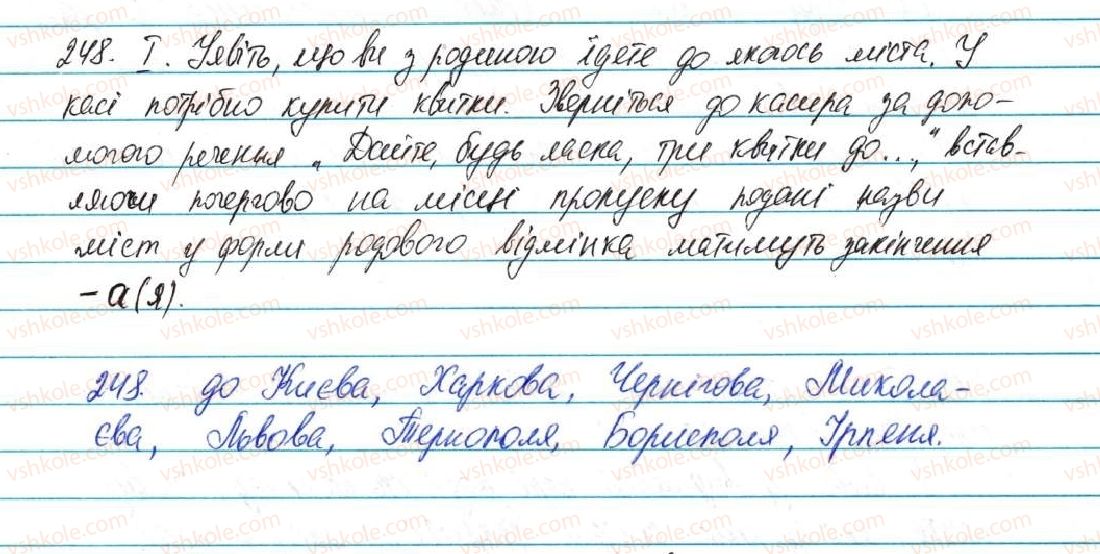 248. I. Уявіть, що ви з родиною їдете до якогось міста. У
касі потрібно купити квитки. Зверніться до касира за допо-
могою речення „Дайте, будь ласка, три квитки до...," встав-
ляючи почергово на місці пропуску подані назви
міст у формі родового відмінка матимуть закінчення
-а(я).
248. до Києва, Харкова, Чернігова, Микола-
єва, Львова, Тернополя, Борисполя, Ірпеня.
vshkole.com